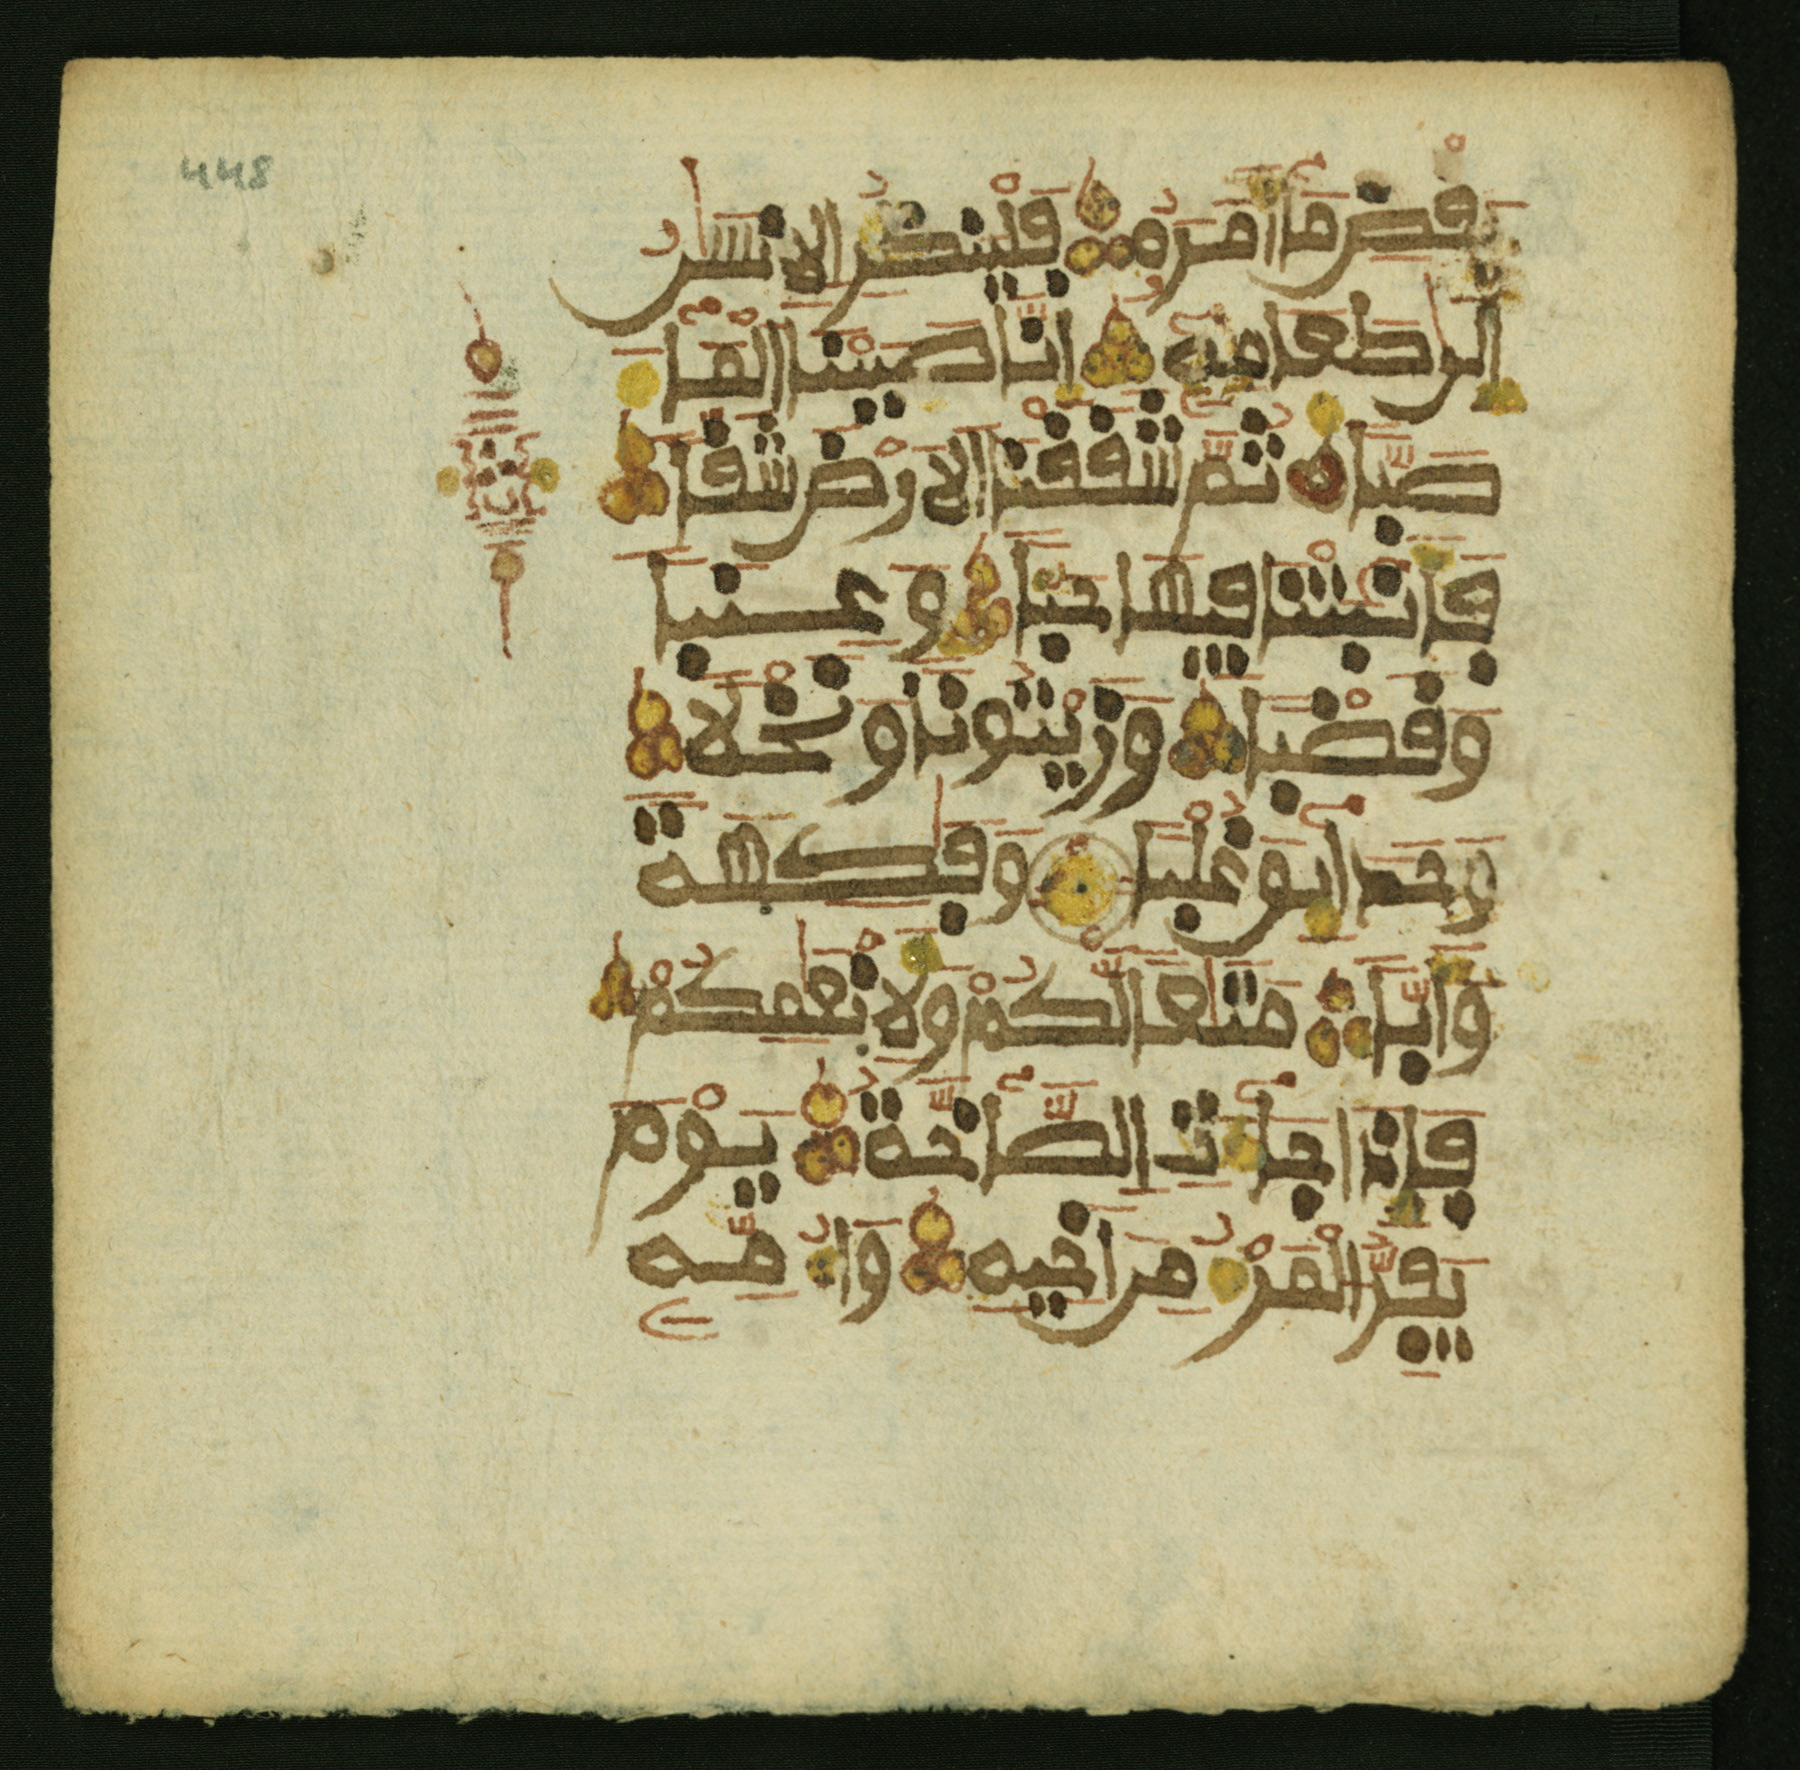 448
يَقْضِ مَا أَمَرَهُ فَلْيَنظُرِ الْإِنسَٰنُ
إِلَىٰ طَعَامِهِ إِنَّا صَبَبْنَا الْمَا
صَبًّا ثُمَّ شَقَقْنَا الْأَرْضَ شَقًّا
فَأَنبَتْنَا فِيهَا حَبًّا وَعِنَبًا
وَقَضْبًا وَزَيْتُونًا وَنَخْلًا
وَحَدَآئِقَ غُلْبًا وَفَٰكِهَةً
وَأَبًّا مَّتَٰعًا لَّكُمْ وَلِأَنْعَٰمِكُمْ
فَإِذَا جَآءَتِ الصَّآخَّةُ يَوْمَ
يَفِرُّ الْمَرْءُ مِنْ أَخِيهِ وَأُمِّهِ